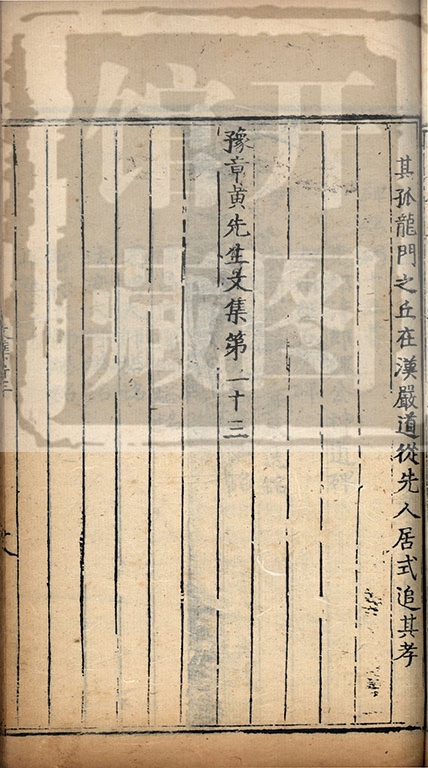 其孤龍門之丘在漢嚴道從先人居式追其孝
豫章黃先生文集第二十三